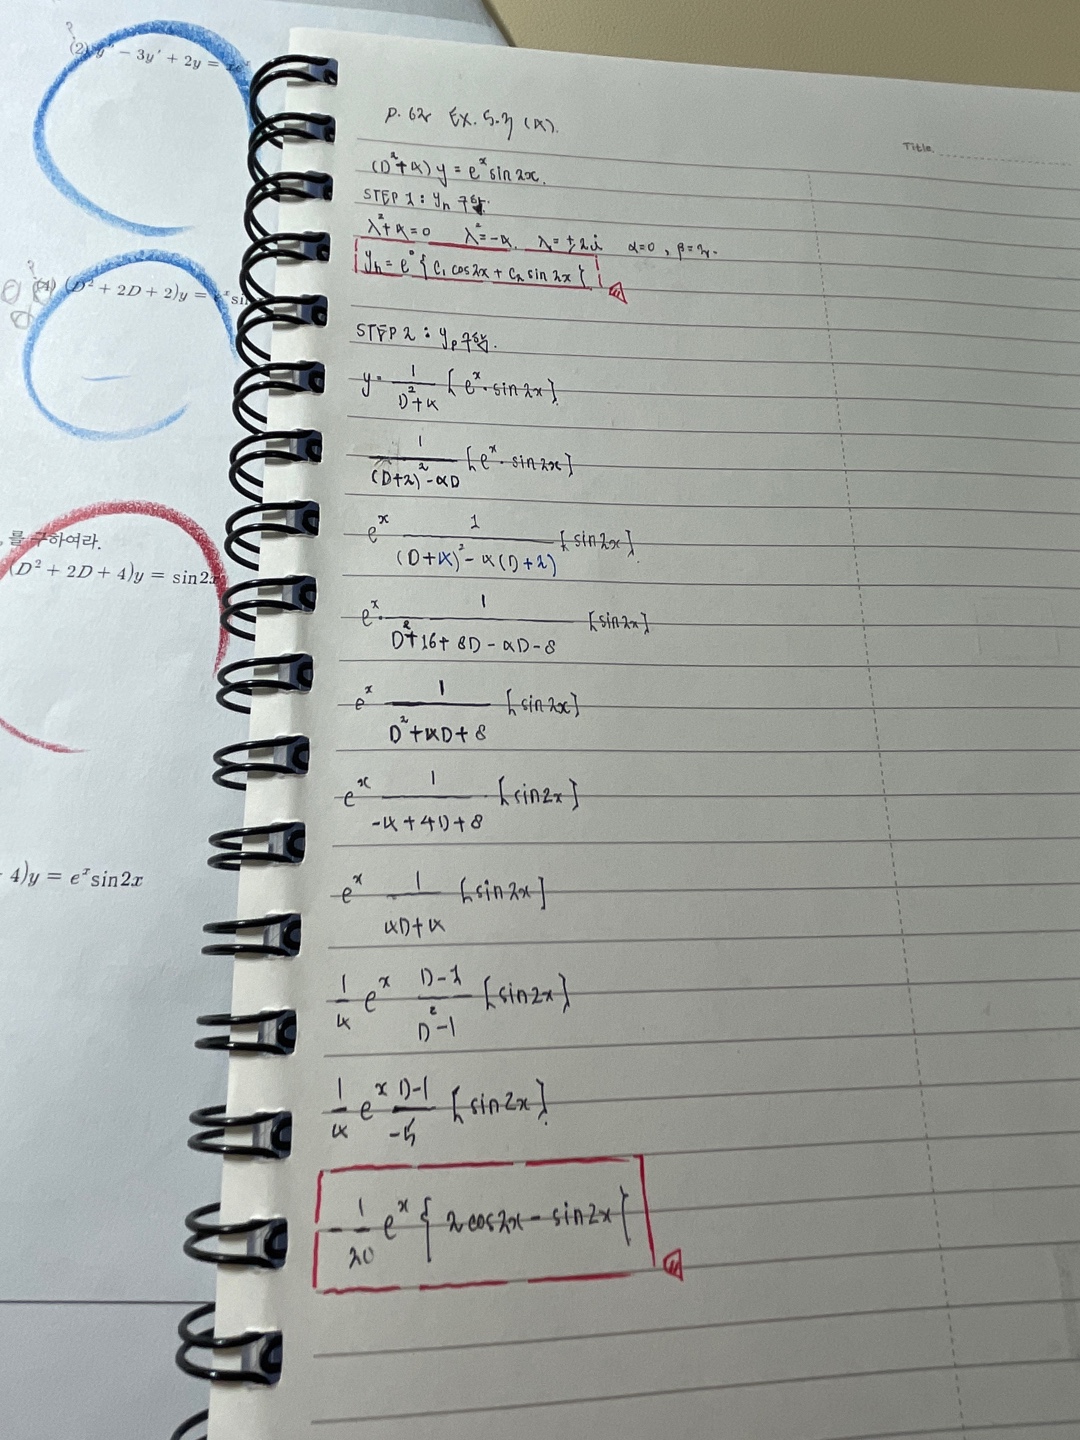 (2) y'' - 3y' + 2y = xe^x
(4) (D² + 2D + 2)y = e^x sin
를 구하여라.
(D² + 2D + 4)y = sin2x
4)y = e^x sin2x
p. 62 Ex. 5.7 (4).
Title.
(D²+4) y = e^x sin 2x.
STEP 1 : y_h 구함.
λ²+4=0 λ²=-4. λ=±2i α=0, β=2.
y_h = e⁰ { C₁ cos2x + C₂ sin 2x }
STEP 2 : y_p 구함.
y = 1/(D²+4) [e^x · sin2x]
1/((D+2)²-4D) [e^x · sin2x]
e^x 1/((D+4)²-4(D+2)) [sin2x]
e^x · 1/(D²+16+8D-4D-8) [sin2x]
e^x 1/(D²+4D+8) [sin2x]
e^x 1/(-4+4D+8) · [sin2x]
e^x 1/(4D+4) [sin2x]
1/4 e^x (D-1)/(D²-1) [sin2x]
1/4 e^x (D-1)/(-5) [sin2x]
-1/20 e^x { 2cos2x - sin2x }